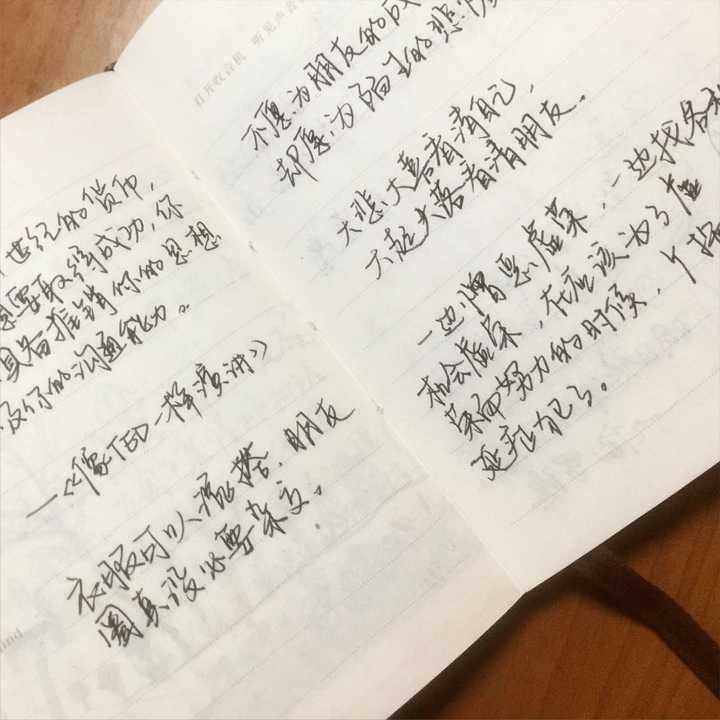 世纪的货币,
要取得成功,你
具备推销你的思想
及你的沟通能力。
—《像TED一样演讲》
衣服可以混搭,朋友
圈真没必要杂交。
ind
打开收音机 听见声音
不愿为朋友的成
却愿为陌生的悲
大悲大喜看清自己,
大起大落看清朋友。
一边憎恶虚荣,一边找各种
机会虚荣,在应该为了虚
荣而努力的时候,
是在自己了。